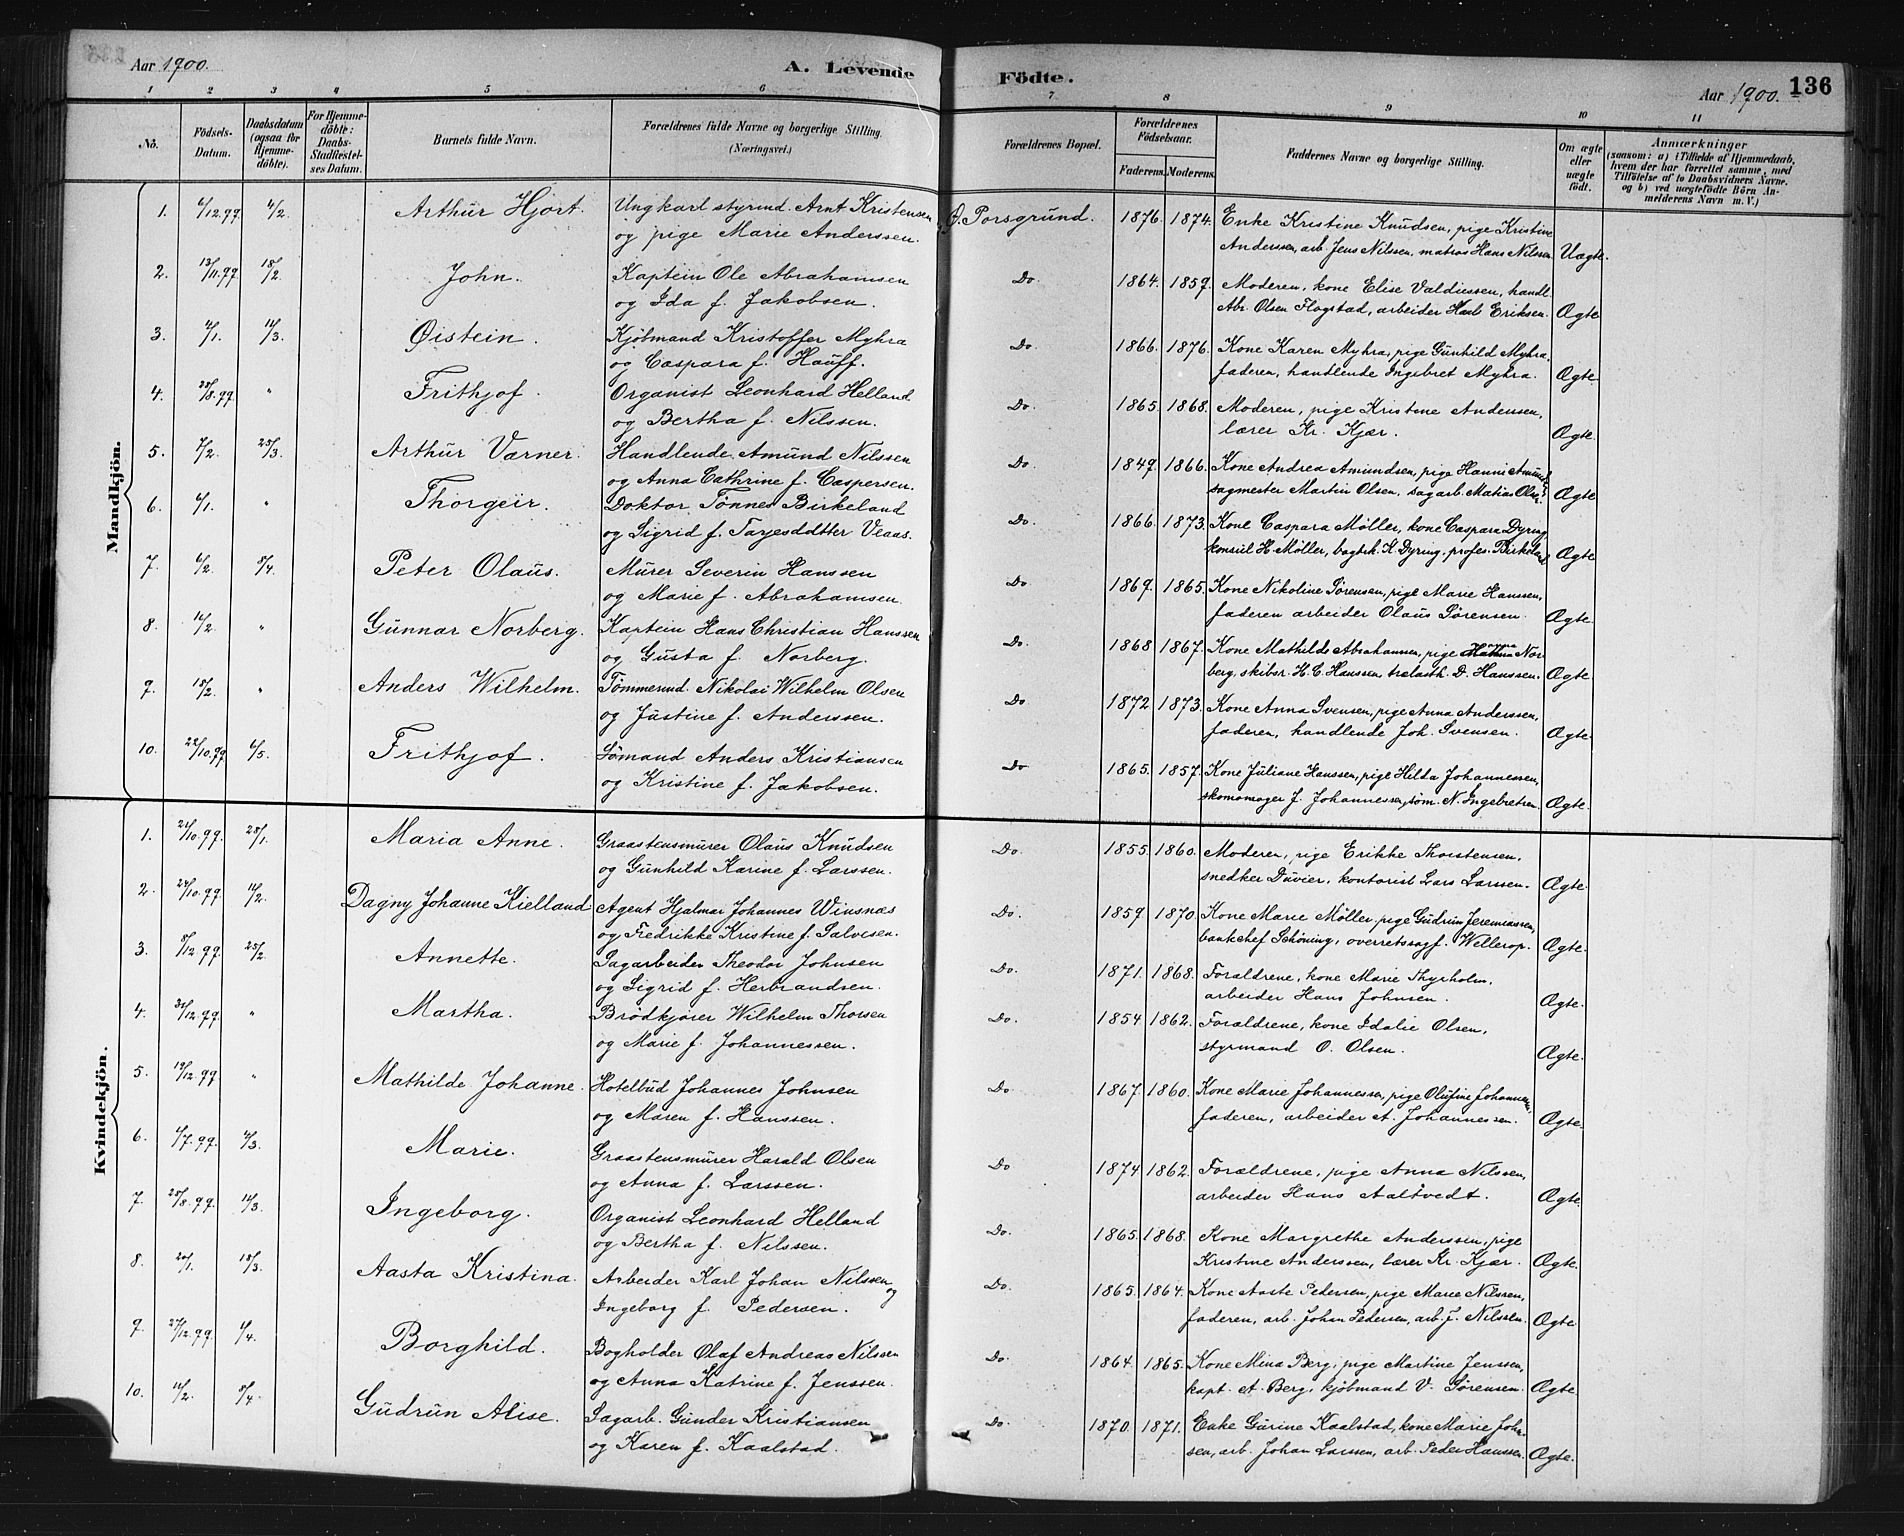 Aar 1900. A. Levende Födte. Aar 1900. 136
1 2 3 4 5 6 7 8 9 10 11
No. Födsels-Datum. Daabsdatum (ogsaa for Hjemmedöbte). For Hjemmedöbte: Daabs-Stadfæstelses Datum. Barnets fulde Navn. Forældrenes fulde Navne og borgerlige Stilling. (Næringsvei.) Forældrenes Bopæl. Forældrenes Födselsaar. Faderens. Moderens. Faddernes Navne og borgerlige Stilling. Om ægte eller uægte födt. Anmærkninger (saasom: a) i Tilfælde af Hjemmedaab, hvem der har forrettet samme, med Tilföielse af to Daabsvidners Navne. og b) ved uægtefödte Börn Anmelderens Navn m. V.)
Mandkjön.
1. 6/12.99. 4/2. Arthur Hjort. Ungkarl styrmd. Arnt Kristensen Ø. Porsgrund. 1876. 1874. Enke Kristine Knudsen, pige Kristine
og pige Marie Anderssen. Anderssen, arb. Jens Nilssen, matros Hans Nilssen. Uægte.
2. 13/11.99. 18/2. John. Kaptein Ole Abrahamsen Do. 1864. 1859. Moderen, kone Elise Valdiessen, handl.
og Ida f. Jakobsen. Abr. Olsen Flogstad, arbeider Eriksen. Ægte
3. 4/1. 11/3. Øistein. Kjöbmand Kristoffer Myhra Do. 1866. 1876. Kone Karen Myhra, pige Gunhild Myhra,
og Caspara f. Hauff. faderen, handlende Ingebret Myhra. Ægte.
4. 28/8.99 " Frithjof. Organist Leonhard Helland Do. 1865. 1868. Moderen, pige Kristine Anderssen,
og Bertha f. Nilssen. lærer Kr. Kjær. Ægte.
5. 7/2. 25/3. Arthur Varner. Handlende Amund Nilssen Do. 1849. 1866. Kone Andrea Amundsen, pige Hanni
og Anna Cathrine f. Caspersen. sagmester Martin Olsen, sagarb. Matias Olsen. Ægte
6. 6/1. " Thorgeir. Doktor Tönnes Birkeland Do. 1866. 1873. Kone Caspara Møller, kone Caspara Dyring,
og Sigrid f. Tarjesddtter Vraas. konsul H. Møller, K. Dyring, profes. Birkeland Ægte
7. 6/2. 8/4. Peter Olaus. Murer Severin Hanssen Do. 1869. 1865. Kone Nikoline Sørensen, pige Marie Hanssen,
og Marie f. Abrahamsen. faderen arbeider Olaus Sørensen. Ægte.
8. 16/2. " Gunnar Norberg. Kaptein Hans Christian Hanssen Do. 1868 1867. Kone Mathilde Abrahamsen, pige Nor
og Gusta f. Norberg. berg, skibsr. H. C. Hanssen, trælasth. D. Hanssen. Ægte.
9. 18/2. " Anders Wilhelm. Tömmermd. Nikolai Wilhelm Olsen Do 1872 1873. Kone Anna Svensen, pige Anna Anderssen,
og Justine f. Anderssen. faderen, handlende Joh. Svensen. Ægte.
10. 22/10.99. 6/5. Frithjof. Sömand Anders Kristiansen Do 1865. 1857. Kone Juliane Hanssen, pige Hilda Johannessen,
og Kristine f. Jakobsen. skomager J. Johannessen, söm. N. Ingebretsen. Ægte.
Kvindekjön.
1. 21/10.99. 28/1. Maria Anne. Graastensmurer Olaus Knudsen Do. 1855. 1860. Moderen, pige Erikke Thorstensen,
og Gunhild Karine f. Larssen. snedker Duvier, kontorist Lars Larssen. Ægte.
2. 24/10.99. 11/2. Dagny Johanne Kielland Agent Hjalmar Johannes Winsnæs Do. 1859 1870. Kone Marie Møller, pige Gudrun Jeremiassen,
og Fredrikke Kristine f. Salvesen. bankchef Schöning, overretssagf. Wellerop. Ægte.
3. 8/12.99. 25/2. Annette. Sagarbeider Theodor Johnsen Do. 1871. 1868. Forældrene, kone Marie Thyrholm,
og Sigrid f. Herbrandsen. arbeider Hans Johnsen. Ægte.
4. 31/12.99. " Martha. Brödkjører Wilhelm Thorsen Do. 1854 1862. Forældrene, kone Idalie Olsen,
og Marie f. Johannessen. styrmand O. Olsen. Ægte.
5. 19/12.99 " Mathilde Johanne. Hotelbud Johannes Johnsen Do. 1867. 1860. Kone Marie Johannessen, pige Olufine Johannesen,
og Maren f. Hanssen. faderen, arbeider A. Johannessen. Ægte.
6. 4/7.99. 4/3. Marie. Graastensmurer Harald Olsen Do 1874 1862. Forældrene, pige Anna Nilssen,
og Anna f. Larssen. arbeider Hans Aaltvedt. Ægte.
7. 28/8.99. 11/3. Ingeborg. Organist Leonhard Helland Do. 1865. 1868. Kone Margrethe Anderssen, pige
og Bertha f. Nilssen. Kristine Anderssen, lærer Kr. Kjær. Ægte.
8. 20/1. 18/3. Aasta Kristina. Arbeider Karl Johan Nilssen og Do. 1865. 1864. Kone Aaste Pedersen, pige Marie Nilssen,
Ingeborg f. Pedersen. faderen, arb. Johan Pedersen, arb. J. Nilssen. Ægte.
9. 27/12.99. 1/4. Borghild. Bogholder Olaf Andreas Nilssen Do. 1864. 1865. Kone Mina Berg, pige Martine Jenssen,
og Anna Katrine f. Jenssen. kapt. A. Berg, kjöbmand V. Sørensen. Ægte.
10. 11/2. 8/4. Gudrun Alise. Sagarb. Gunder Kristiansen Do. 1870. 1871. Enke Gurine Kaalstad, kone Marie John
og Karen f. Kaalstad. sen, arb. Johan Larssen, arb. Peder Hanssen. Ægte.